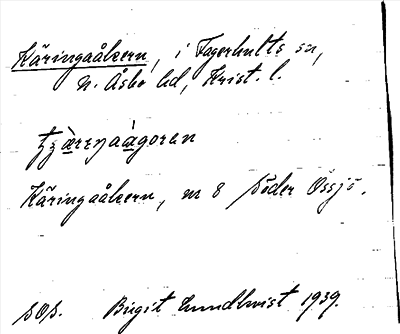 Käringaåkern, i Fagerhults sn,
N. Åsbo hd, Krist. l.
Käringaåkern, nr 8 Söder Össjö.
SOS. Birgit Lundkvist 1939.